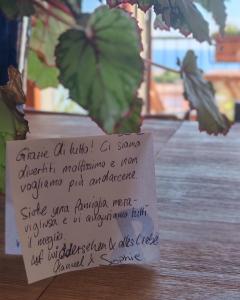 Grazie di tutto! Ci siamo
divertiti moltissimo e non
vogliamo più andarcene.
Siete una famiglia mera-
vigliosa e vi auguriamo tutti
il meglio.
Auf Widdersehen & alles Liebe
Samuel & Sophie